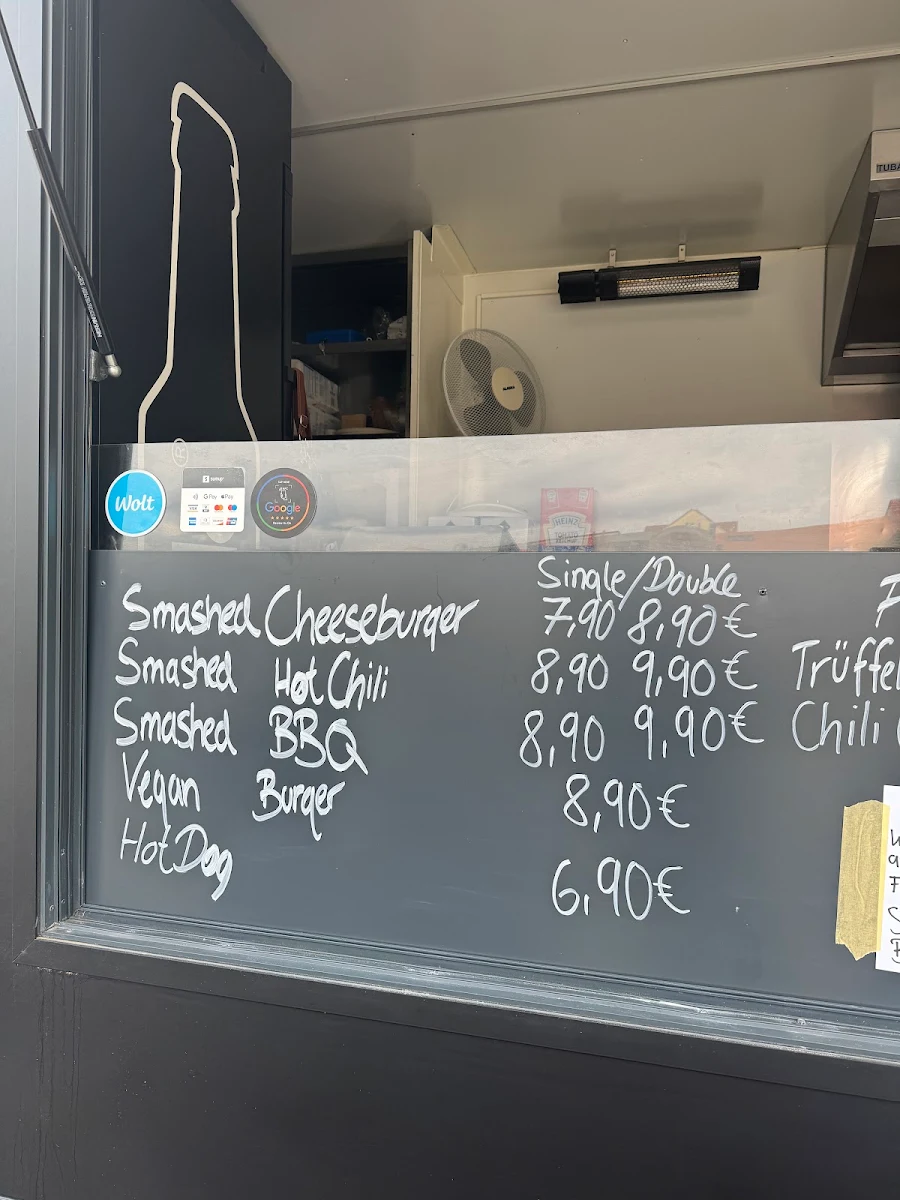 TUBA
Wolt
sumup
G Pay Pay
Google
HEINZ
Single/Double
Smashed Cheeseburger 7,90 8,90€
Smashed Hot Chili 8,90 9,90€
Trüffel
Smashed BBQ 8,90 9,90€
Chili
Vegan Burger 8,90€
Hot Dog 6,90€